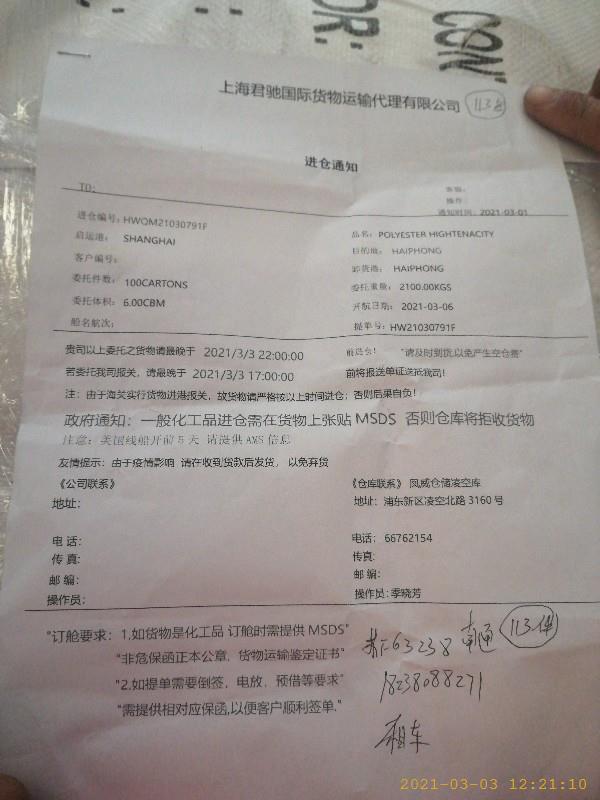 CON
OR:
上海君驰国际货物运输代理有限公司
113件
进仓通知
TO:
客服:
操作:
通知时间: 2021-03-01
进仓编号: HWQM21030791F
品名: POLYESTER HIGHTENACITY
启运港: SHANGHAI
目的地: HAIPHONG
客户编号:
卸货港: HAIPHONG
委托件数: 100CARTONS
委托重量: 2100.00KGS
委托体积: 6.00CBM
开航日期: 2021-03-06
船名航次:
提单号: HW21030791F
贵司以上委托之货物请最晚于 2021/3/3 22:00:00 前进仓! "请及时到货,以免产生空仓费"
若委托我司报关, 请最晚于 2021/3/3 17:00:00 前将报送单证送抵我司!
注: 由于海关实行货物进港报关, 故货物请严格按以上时间进仓; 否则后果自负!
政府通知: 一般化工品进仓需在货物上张贴 MSDS 否则仓库将拒收货物
注意: 美国线船开前 5 天 请提供 AMS 信息
友情提示: 由于疫情影响 请在收到货款后发货, 以免弃货
《公司联系》
《仓库联系》 凤威仓储凌空库
地址:
地址: 浦东新区凌空北路 3160 号
电 话:
电话: 66762154
传 真:
传真:
邮 编:
邮 编:
操作员:
操作员: 季晓芳
"订舱要求: 1.如货物是化工品 订舱时需提供 MSDS"
"非危保函正本公章, 货物运输鉴定证书"
"2.如提单需要倒签, 电放, 预借等要求"
"需提供相对应保函,以便客户顺利签单."
63238 南通
113件
18238088271
租车
2021-03-03 12:21:10